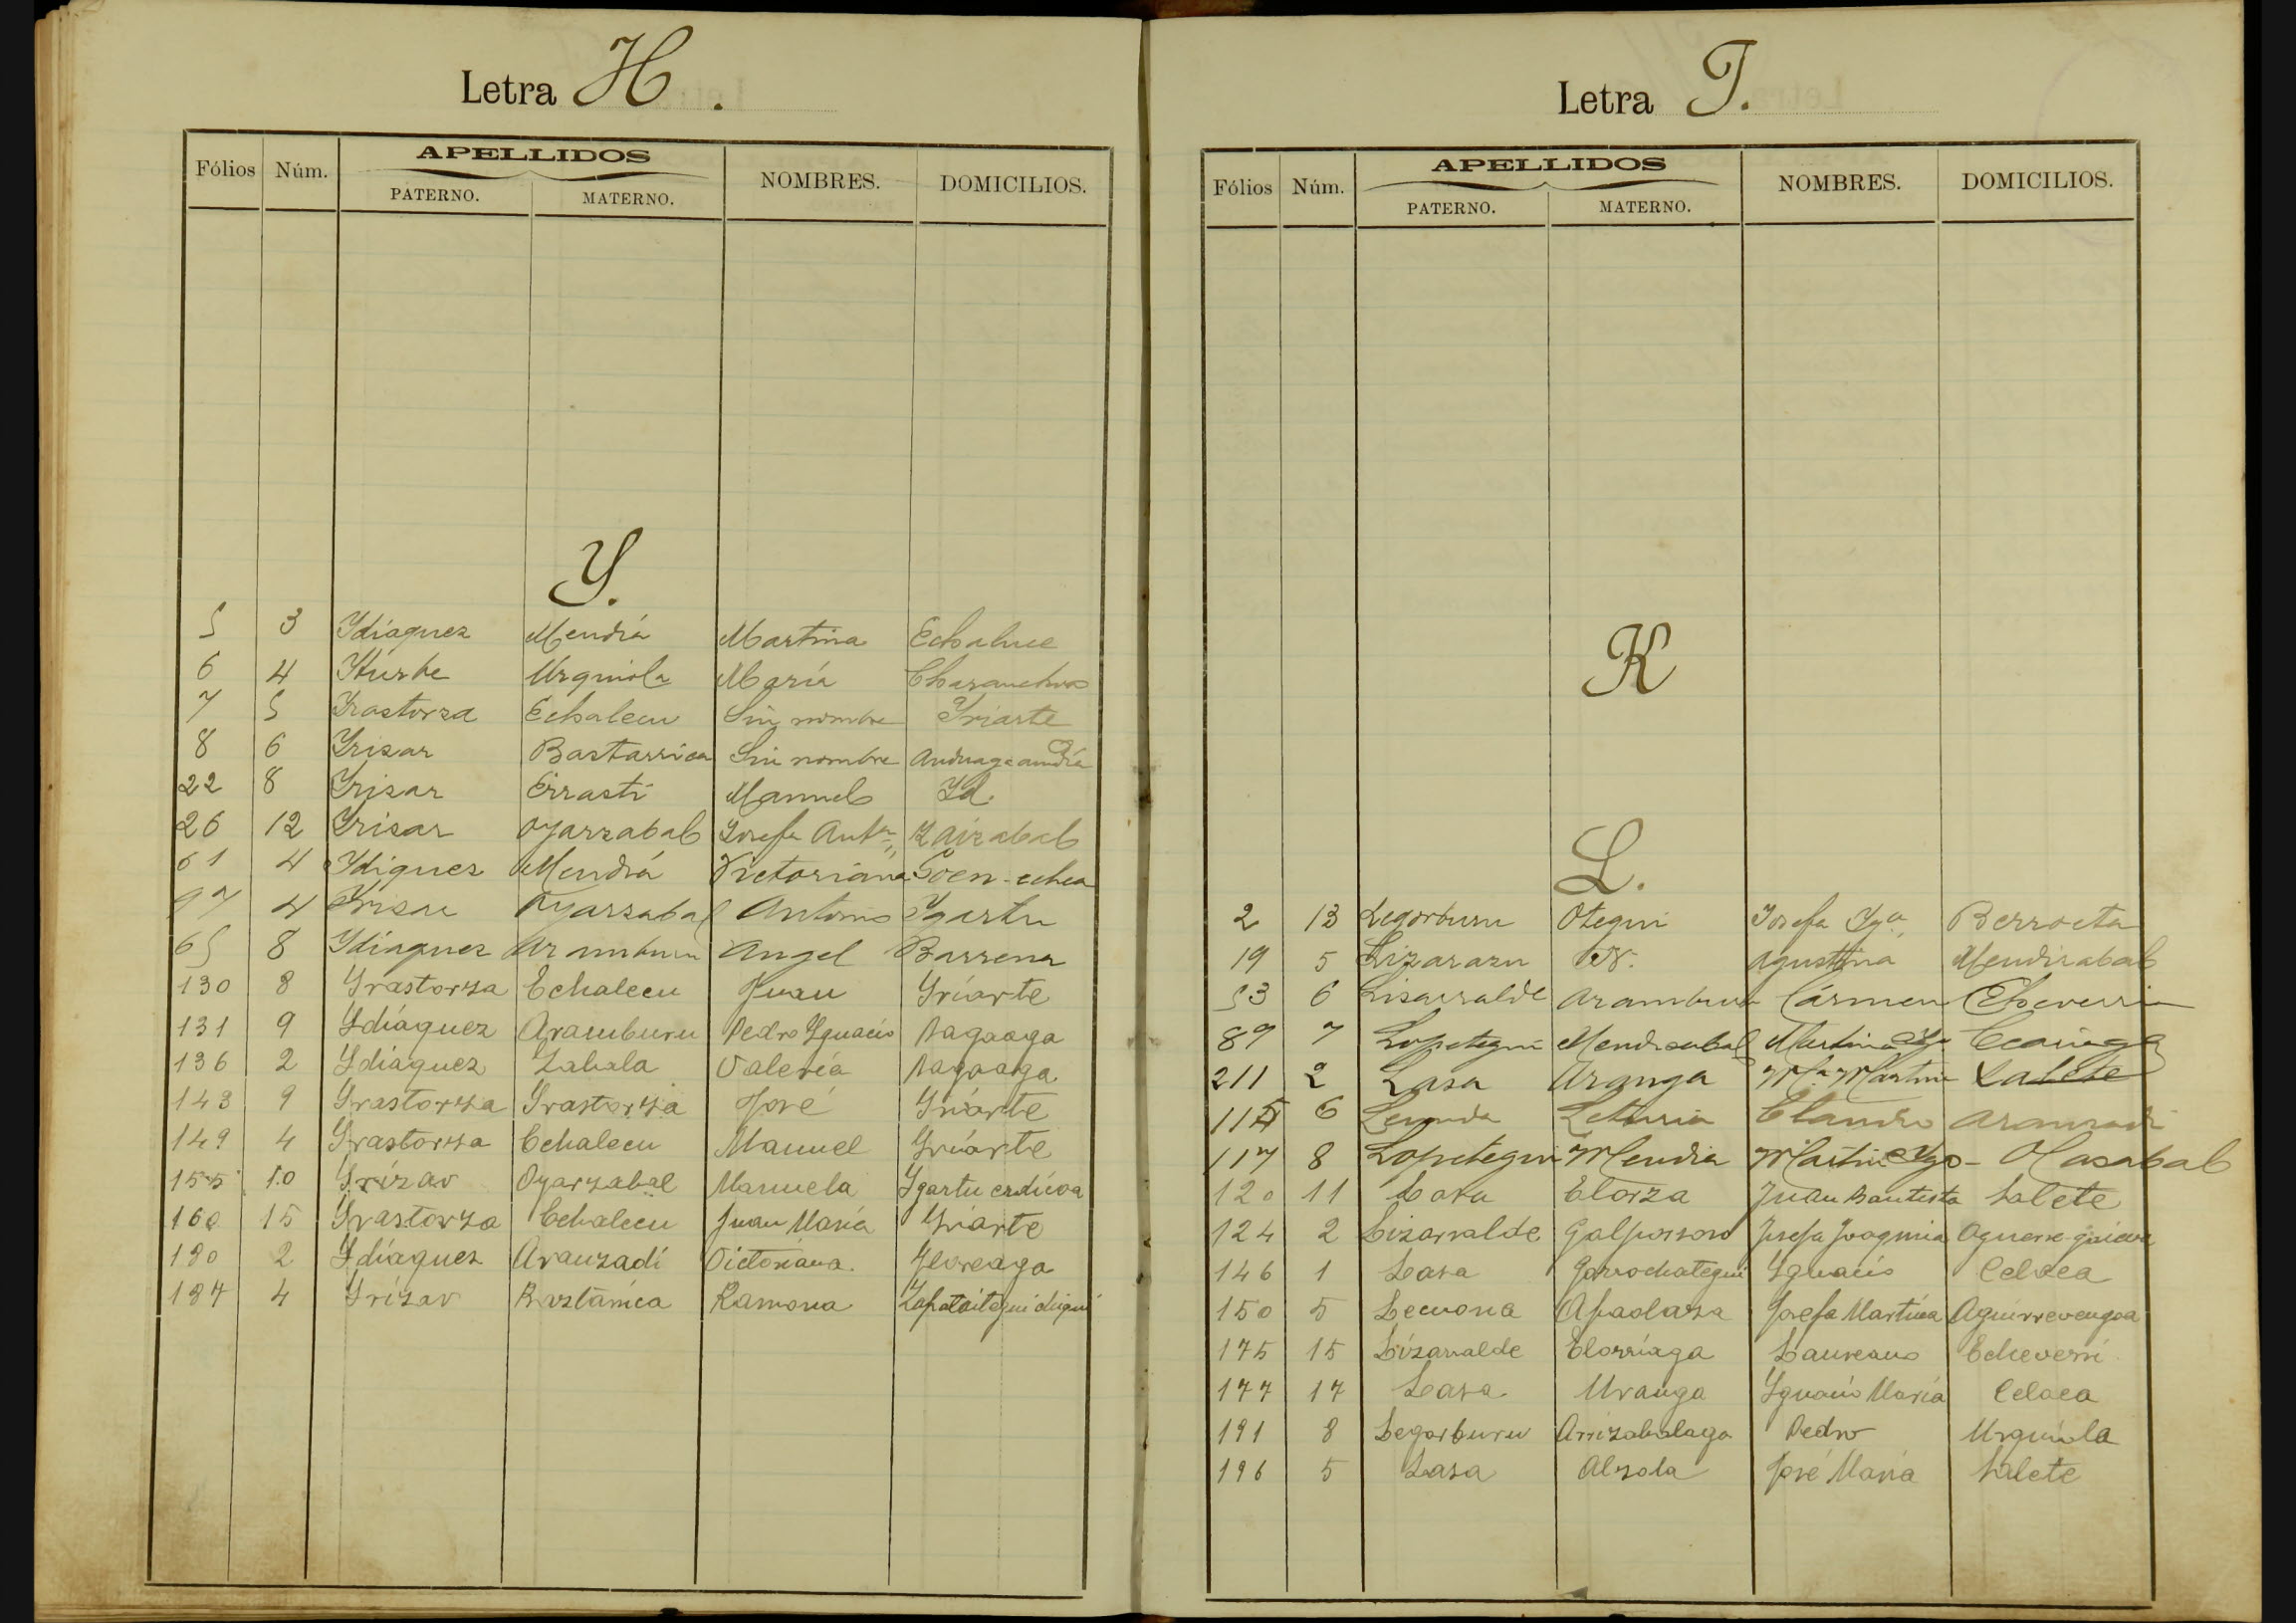 Letra H.
Fólios Núm. APELLIDOS NOMBRES. DOMICILIOS.
PATERNO. MATERNO.
Y.
5 3 Ydiaquez Mendia Martina Echaluce
6 4 Yturbe Urquiola María
7 5 Yrastorza Echalecu Sin nombre Yriarte
8 6 Yrizar Bastarrica Sin nombre Anduaga aundía
22 8 Yrizar Errasti Manuel Yd.
26 12 Yrizar Oyarzabal Josefa Antª Zaizabal
61 4 Ydiquez Mendiá Victoriana Goen-echea
97 4 Yrizar Oyarzabal Antonio Ygartu
65 8 Ydiaquez Aramburu Angel Barrena
130 8 Yrastorza Echalecu Juan Yriarte
131 9 Ydiáquez Aramburu Pedro Ygnacio Pagaaga
136 2 Ydiáquez Zabala Valeria Pagaaga
143 9 Yrastorza Yrastorza José Yriarte
149 4 Yrastorza Echalecu Manuel Yriarte
155 10 Yrízar Oyarzabal Manuela Ygartu erdicoa
160 15 Yrastorza Echalecu Juan María Yriarte
180 2 Ydíaquez Aranzadi Victoriana.
187 4 Yrízar Baztánica Ramona
Letra J.
Fólios Núm. APELLIDOS NOMBRES. DOMICILIOS.
PATERNO. MATERNO.
K
L.
2 13 Legorburu Otegui Josefa Ygª. Berroeta
19 5 Lizarazu N. Agustina Mendizabal
53 6 Lizarralde Aramburu Cármen Echeverria
89 7 Lopetegui Mendizabal Martina
211 2 Lasa Aranga Mª Martina Lalete
6 Leturia Claudio Aranzadi
117 8 Lopetegui Mendia Martin Ygº- Olasabal
120 11 Lasa Elorza Juan Bautista Lalete
124 2 Lizarralde Galparsoro Josefa Joaquina
146 1 Lasa Garrochategui Ygnacio Celaea
150 5 Lecuona Apaolaza Josefa Martina Aguirrevengoa
175 15 Lízarralde Elorriaga Laureano Echeverri
177 17 Lasa Uranga Ygnacio María Celaea
191 8 Legorburu Arrizabalaga Pedro Urquiola
196 5 Lasa Alzola José María Lalete